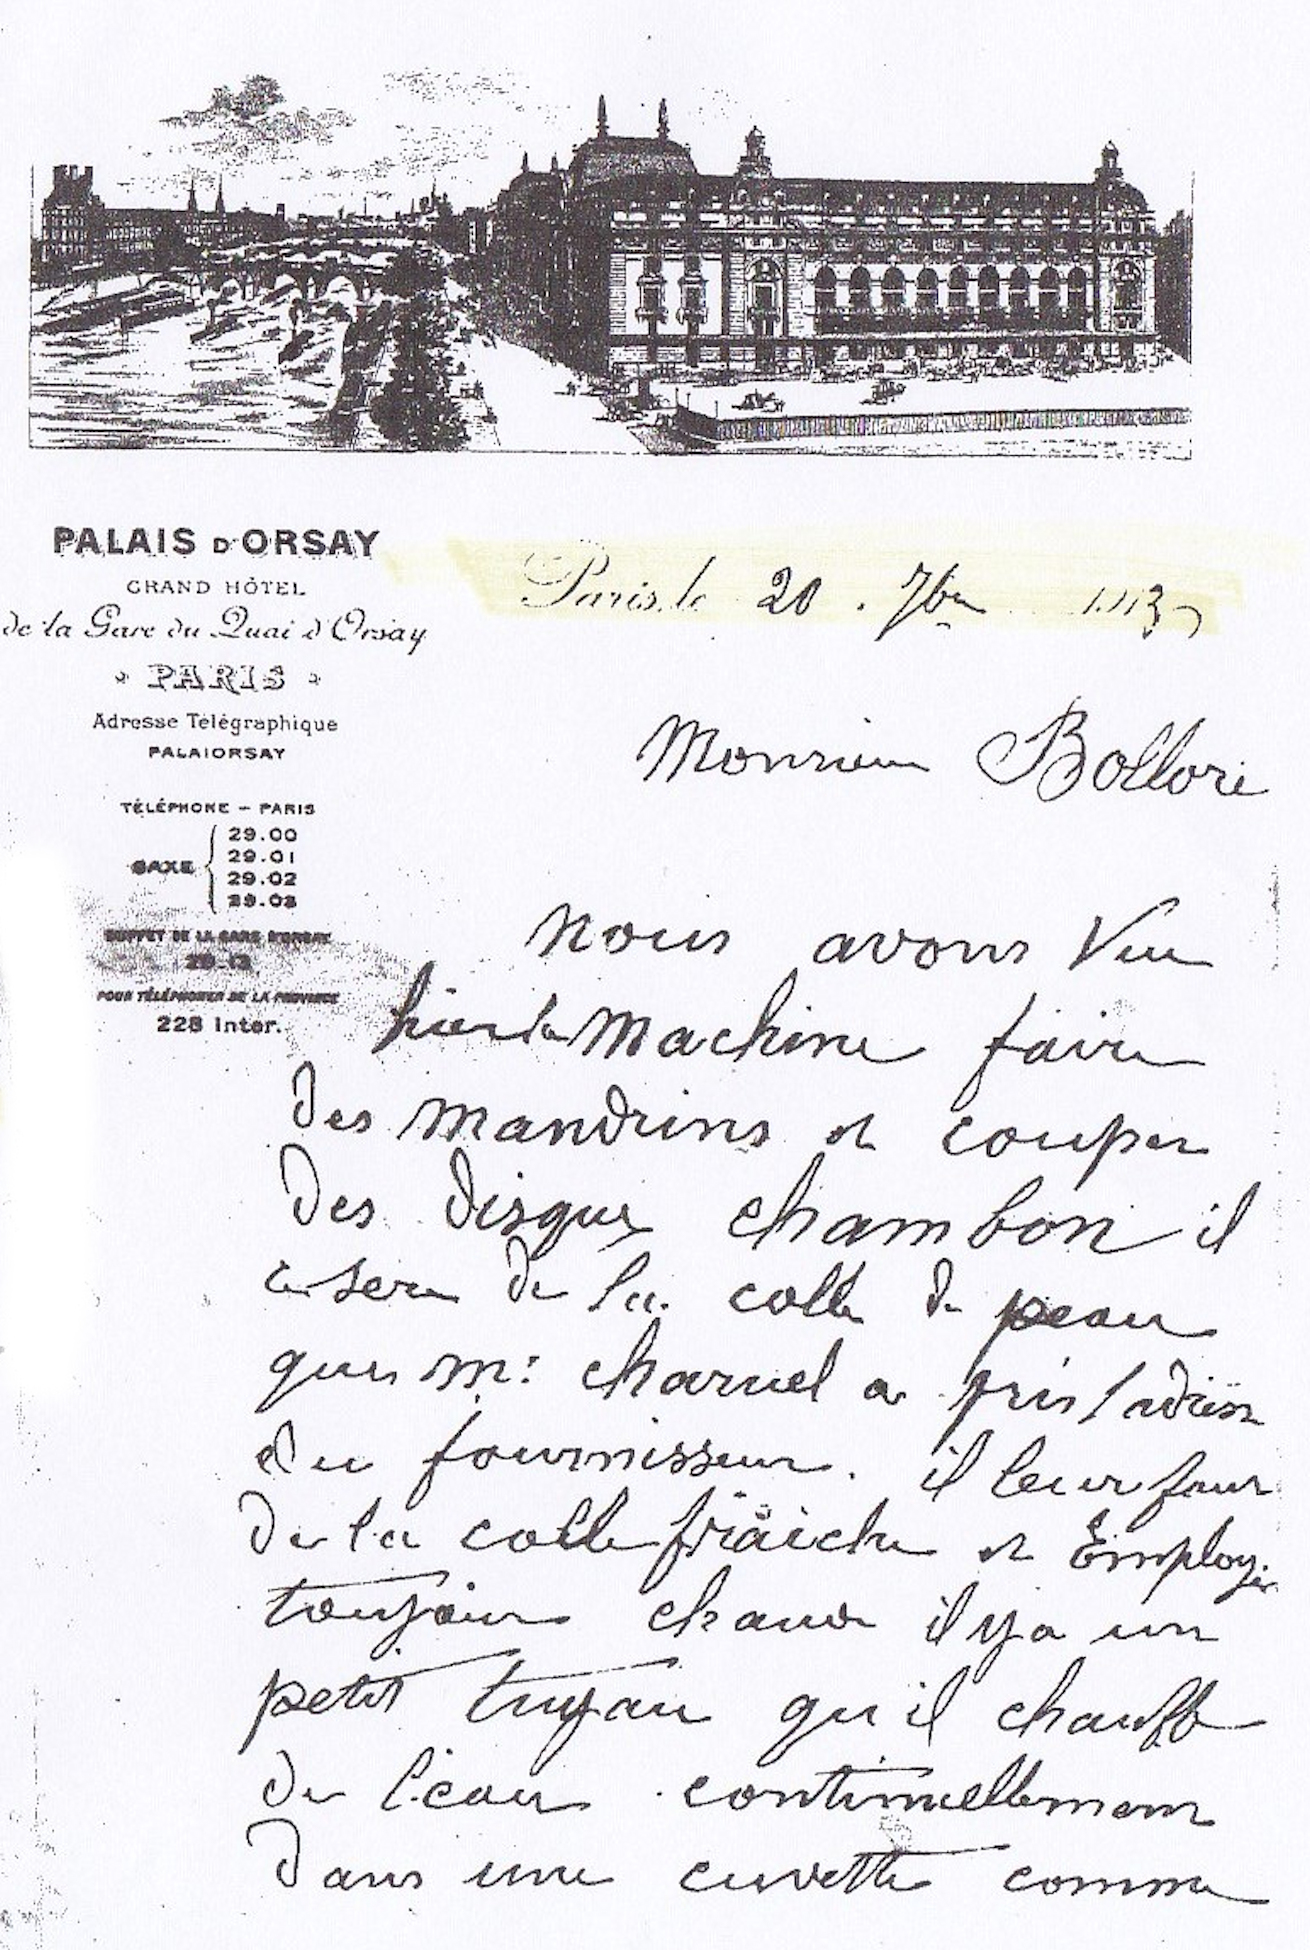 PALAIS D'ORSAY
GRAND HÔTEL
de la Gare du Quai d'Orsay
PARIS
Adresse Télégraphique
PALAIORSAY
TÉLÉPHONE - PARIS
SAXE
29.00
29.01
29.02
29.03
BUFFET DE LA GARE D'ORSAY
POUR TÉLÉPHONER DE LA PROVINCE
228 Inter.
Paris, le 20 . 7bre 1913
Monsieur Bolloré
Nous avons Vue
hier la Machine faire
des Mandrins et couper
des disque chambon il
se sere de la colle de peau
que Mr: Charuel a pris l'adresse
du fournisseur. il leur faut
de la colle fraiche et Employer
toujour chaude il y a un
petit tuyau qu'il chauffe
de l'eau continuellement
dans une cuvette comme